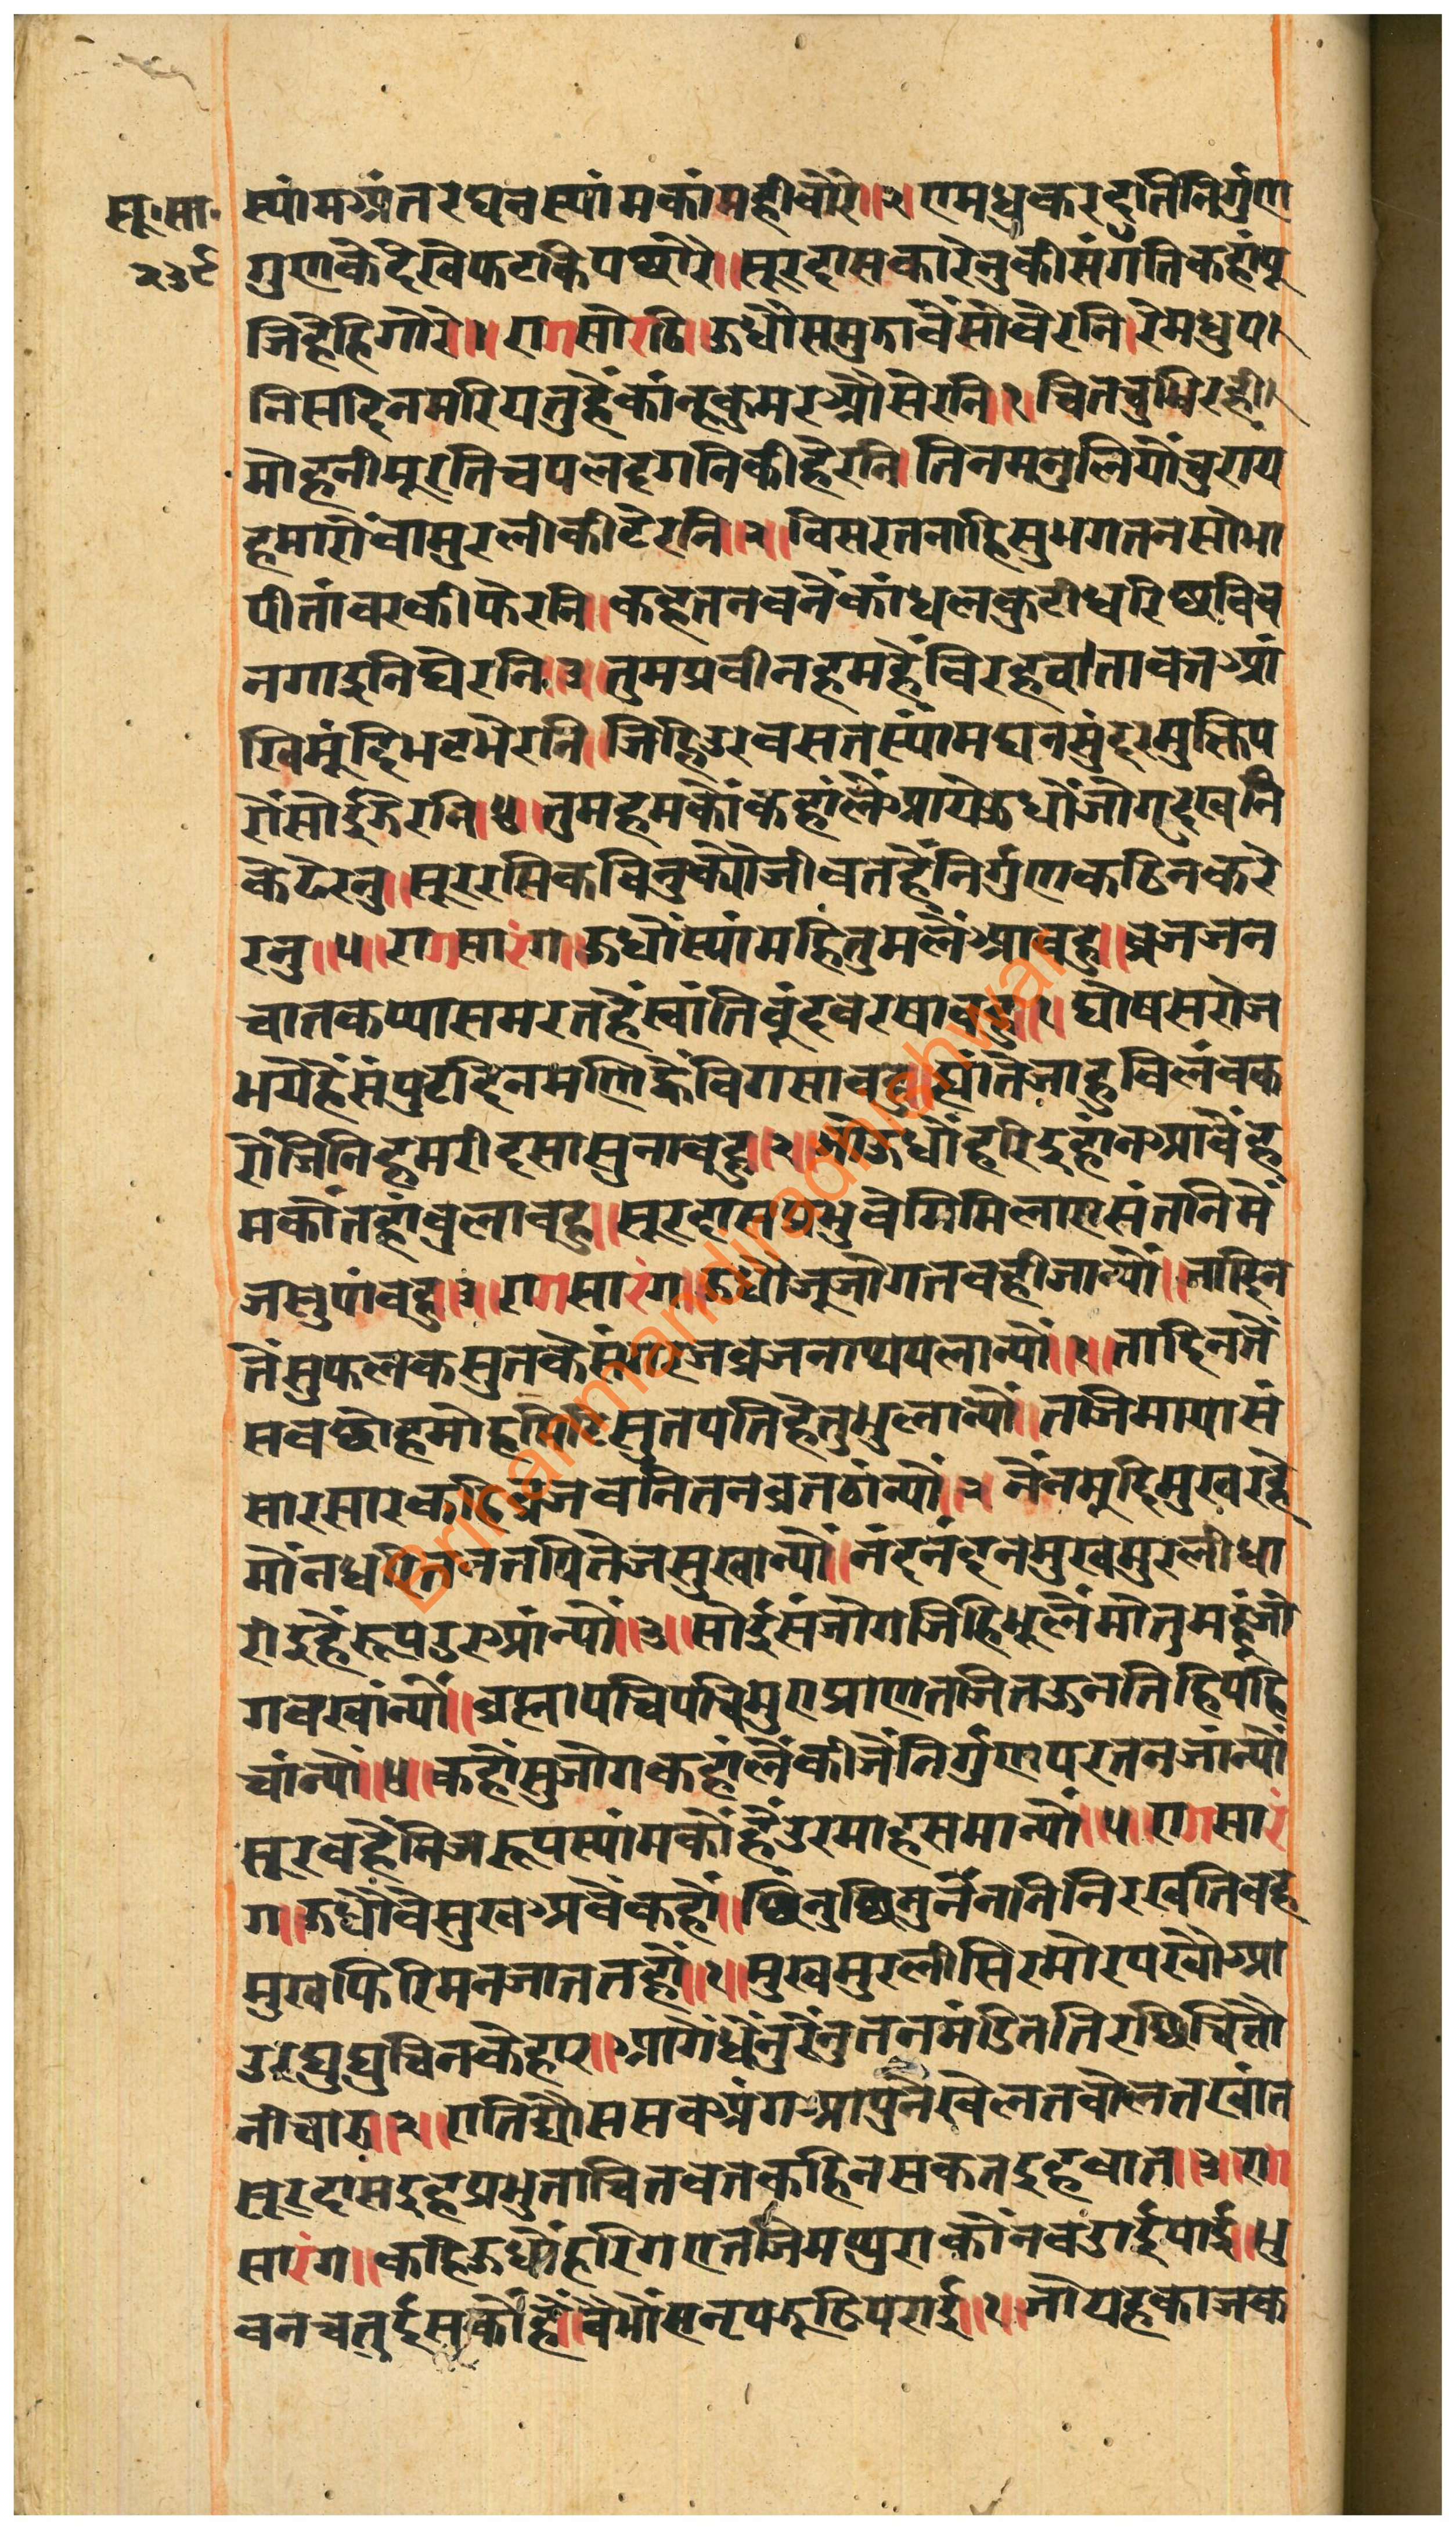 सू॰सा॰
२३९
स्यांमअंतरघनस्यांमकांमहीवौरे॥२॥एमधुकरदुतिनिर्गुण
गुणकेदेखेफटकिपछोरे॥सूरदासकारेनुकीसंगतिकहांपू
जिहैहिगोरे॥१॥रागसोरठि॥ऊधौसमुजावैंसोवैरनि।रेमधुप।
निसदिनमरियतुहैंकांन्हकुमरऔसेरनि॥१॥चितचुभिरही।
मोहनीमूरतिचपलदृगनिकीहेरनि।तिनमनुलियौचुराय
हमारौंवामुरलीकीटेरनि॥२॥विसरतनाहिसुभगतनसोभा
पीतांवरकीफेरनि॥कहतनवनैंकांधलकुटीधरिछविव
नगाइनिघेरनि॥३॥तुमप्रवीनहमहैंविरहवातावतआं
खिमूंदिभटभेरनि॥जिहिउरवसतस्यांमघनसुंदरमुक्तिप
रौंसोईजेरनि॥४॥तुमहमकौंकहांलैंआयेऊधौंजोगदुखनि
केढेरनु॥सूररसिकविनुक्यौजीवतहैंनिर्गुणकठिनकरे
रनु॥५॥रागसारंग॥ऊधौंस्यांमहिंतुमलैंआवहु॥व्रजजन
चातकप्यासमरतहैंस्वांतिवूंदवरषावहु॥१॥घोषसरोज
भयेहैंसंपुटदिनमणिह्वैंविगसावहु॥ह्यांतेजाहुविलंवक
रौंजिनिहमरीदसासुनावहु॥२॥जोऊधौंहरिइहांनआवैंह
मकौंतहांवुलावहु॥सूरदासप्रभुवेगिमिलाएसंतनिमें
जसुपांवहु॥३॥रागसारंग॥ऊधौजूजोगतवहीजान्यौं॥जादिन
तेंसुफलकसुतकेसंगरथव्रजनाथपलान्यौं॥१॥तादिनतें
सवछोहमोहमिटिसुतपतिहेतुभुलान्यौं॥तजिमायासं
सारसारकहिव्रजवनितनव्रतठांन्यौं॥२॥नेंनमूदिमुखरहे
मोंनधरितनतपितेजसुखान्यौं॥नंदनंदनमुखमुरलीधा
रीइहैंरूपउरआंन्यौं॥३॥सोईसंजोगजिहिभूलेंमोतुमहूंजो
गवखांन्यौं॥व्रह्मापचिपचिमुएप्राणतजितऊनतिहिपहि
चांन्यौं॥४॥कहौंसुजोगकहांलैंकीजैंनिर्गुणपरतनजांन्यौं
सूरवहैंनिजरूपस्यांमकौंहैंउरमाहसमान्यौं॥५॥रागसारं
ग॥ऊधौवेसुखअवैंकहां॥छिनुछिनुनेंननिनिरखतिवह
मुखफिरिमनजाततहां॥१॥मुखमुरलीसिरमोरपखौआ
उरघुघुचिनकेहार॥आगेंधेंनुरेंनुतनमंडिततिरछिचितौ
नीचारु॥२॥रातिद्यौससवअंगआपुनेखेलतवोलतखांत
सूरदासइहप्रभुताचितवतकहिनसकतइहवात॥३॥राग
सारंग॥कहिऊधौंहरिगएतजिमथुराकौंनवडाईपाई॥भु
वनचतुर्दसकौहैंवैभौंसनृपजूठिपराई॥१॥जौयहकाजक